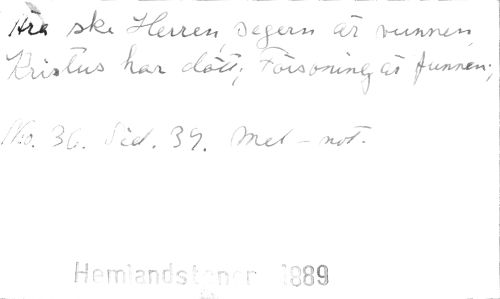 Ära ske Herren, segern är vunnen,
Kristus har dött; Försoning är funnen;
No. 36. Sid. 39. Mel - not.
Hemlandstoner 1889